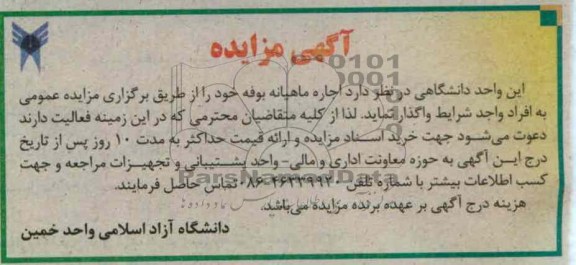 آگهی مزایده
این واحد دانشگاهی در نظر دارد اجاره ماهیانه بوفه خود را از طریق برگزاری مزایده عمومی
به افراد واجد شرایط واگذار نماید. لذا از کلیه متقاضیان محترمی که در این زمینه فعالیت دارند
دعوت می‌شود جهت خرید اسناد مزایده و ارائه قیمت حداکثر به مدت ۱۰ روز پس از تاریخ
درج این آگهی به حوزه معاونت اداری و مالی- واحد پشتیبانی و تجهیزات مراجعه و جهت
کسب اطلاعات بیشتر با شماره تلفن ۴۶۲۳۹۹۲۰-۰۸۶ تماس حاصل فرمایند.
هزینه درج آگهی بر عهده برنده مزایده می‌باشد.
دانشگاه آزاد اسلامی واحد خمین
ParsNamadData